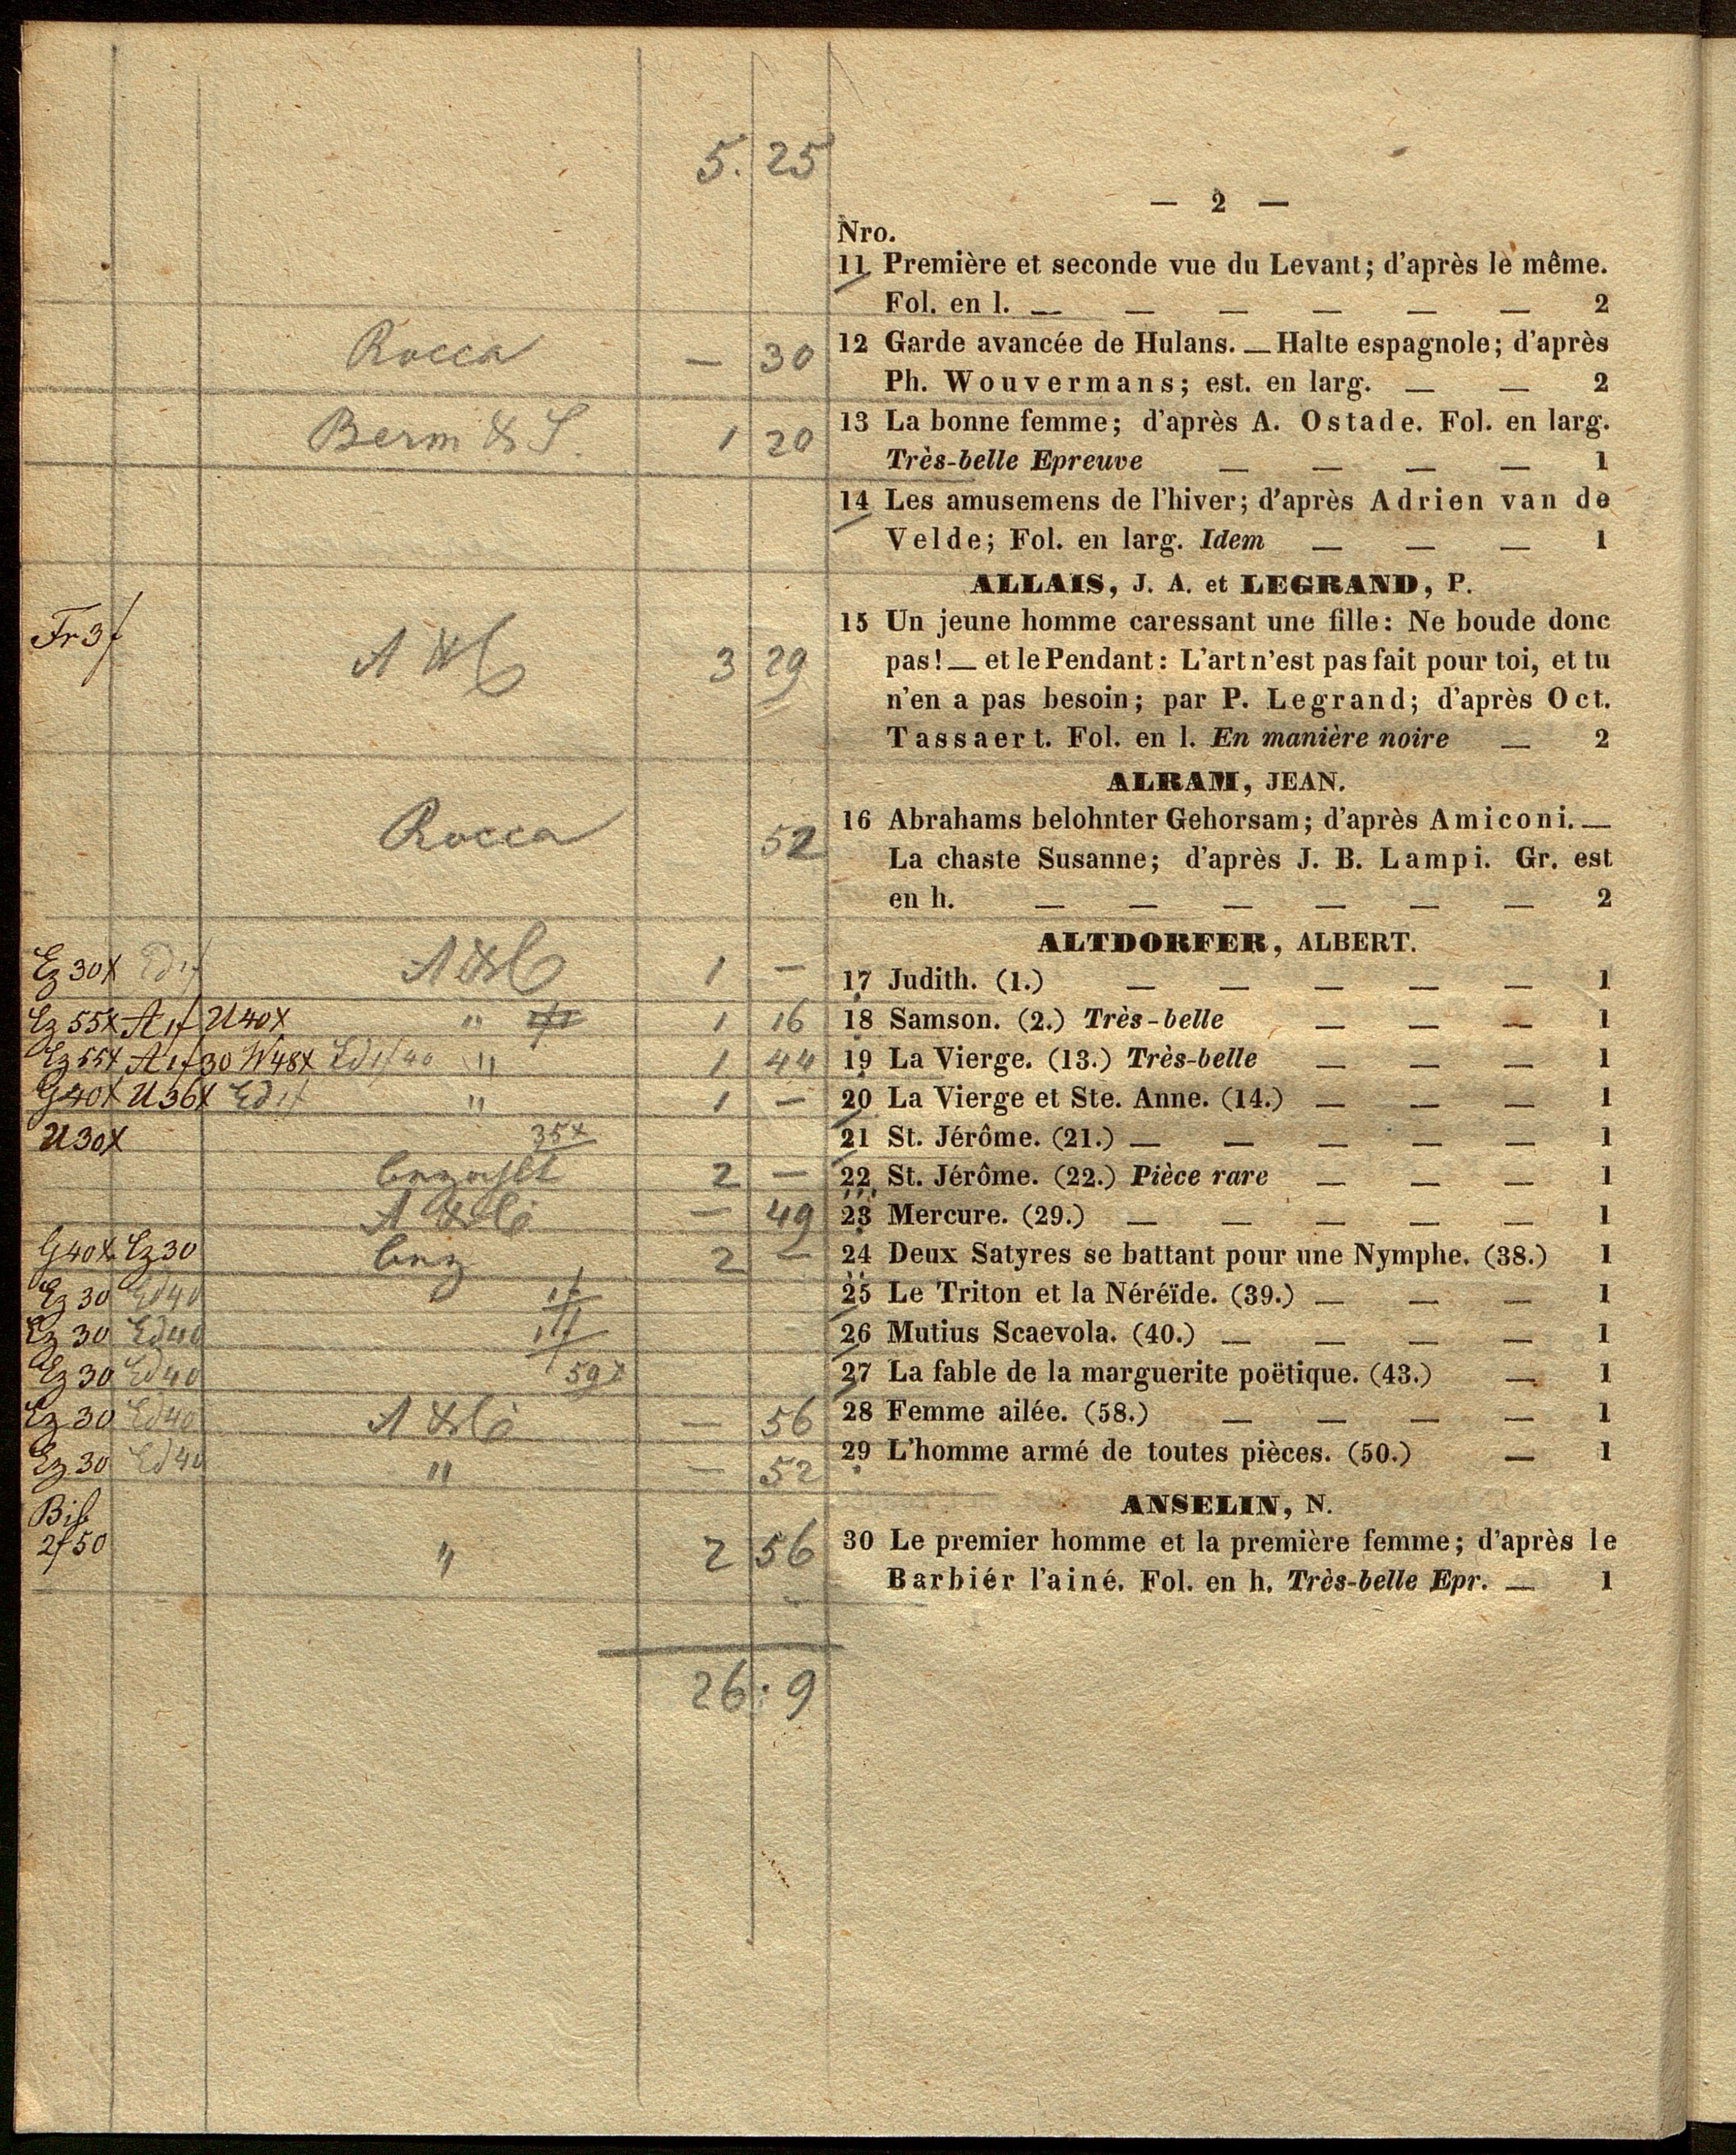 5. 25
— 2 —
Nro.
11 Première et seconde vue du Levant; d'après le même.
Fol. en l. — — — — — — 2
Rocca — 30 12 Garde avancée de Hulans. — Halte espagnole; d'après
Ph. Wouvermans; est. en larg. — — 2
Berm & S. 1 20 13 La bonne femme; d'après A. Ostade. Fol. en larg.
Très-belle Epreuve — — — — 1
14 Les amusemens de l'hiver; d'après Adrien van de
Velde; Fol. en larg. Idem — — — 1
ALLAIS, J. A. et LEGRAND, P.
Fr 3f 3 29 15 Un jeune homme caressant une fille: Ne boude donc
pas! — et le Pendant: L'art n'est pas fait pour toi, et tu
n'en a pas besoin; par P. Legrand; d'après Oct.
Tassaert. Fol. en l. En manière noire — 2
ALRAM, JEAN.
Rocca 52 16 Abrahams belohnter Gehorsam; d'après Amiconi. —
La chaste Susanne; d'après J. B. Lampi. Gr. est
en h. — — — — — — 2
ALTDORFER, ALBERT.
Ez 30x Ed 1f 1 — 17 Judith. (1.) — — — — — 1
Ez 55x A 1f U 40x " 1 16 18 Samson. (2.) Très-belle — — — 1
Ez 55x A 1f 30 W 48x Ed 1f 40 " 1 44 19 La Vierge. (13.) Très-belle — — — 1
G 40x U 36x Ed 1f " 1 — 20 La Vierge et Ste. Anne. (14.) — — — 1
U 30x 35x 21 St. Jérôme. (21.) — — — — — 1
2 — 22 St. Jérôme. (22.) Pièce rare — — — 1
— 49 23 Mercure. (29.) — — — — — 1
G 40x Ez 30 2 — 24 Deux Satyres se battant pour une Nymphe. (38.) 1
Ez 30 Ed 40 1f 25 Le Triton et la Néréïde. (39.) — — — 1
Ez 30 Ed 40 1f 26 Mutius Scaevola. (40.) — — — — 1
Ez 30 Ed 40 59x 27 La fable de la marguerite poëtique. (43.) — 1
Ez 30 Ed 40 — 56 28 Femme ailée. (58.) — — — — 1
Ez 30 Ed 40 " — 52 29 L'homme armé de toutes pièces. (50.) — 1
ANSELIN, N.
2f 50 " 2 56 30 Le premier homme et la première femme; d'après le
Barbiér l'ainé. Fol. en h. Très-belle Epr. — 1
26 : 9